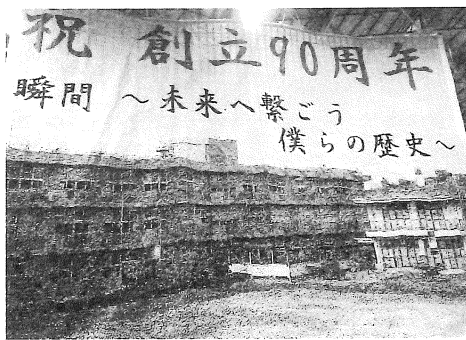 祝 創立90周年
瞬間 ～未来へ繋ごう
僕らの歴史～